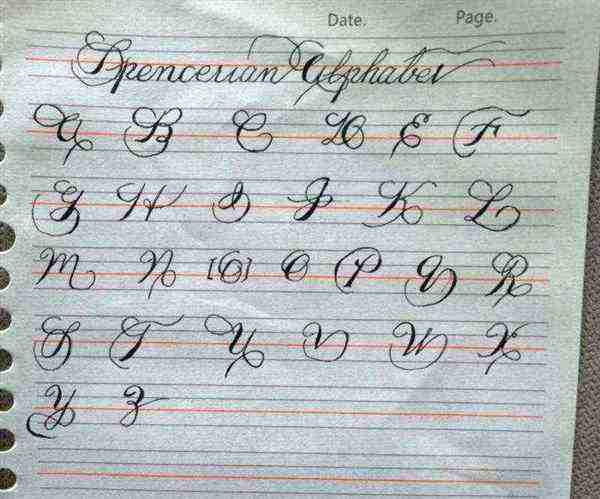 Date. Page.
Spencerian Alphabet
A B C D E F
G H I J K L
M N [O] O P Q R
S T U V W X
Y Z